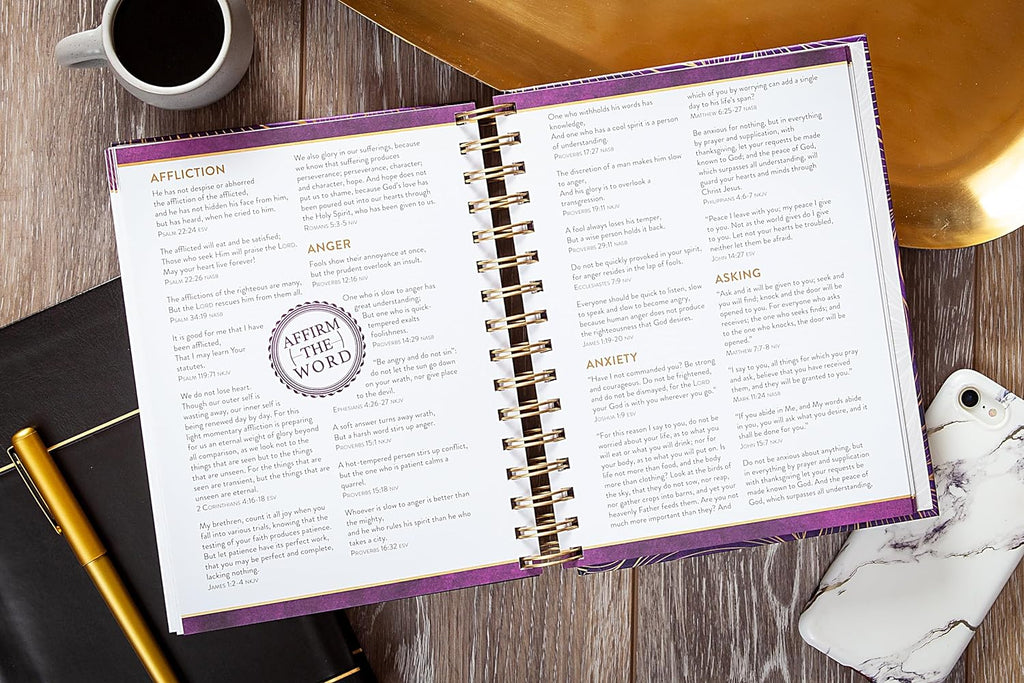 AFFLICTION
He has not despise or abhorred
the affliction of the afflicted,
and he has not hidden his face from him,
but has heard, when he cried to him.
PSALM 22:24 ESV
The afflicted will eat and be satisfied;
Those who seek Him will praise the LORD.
May your hearts live forever!
PSALM 22:26 NASB
The afflictions of the righteous are many,
But the LORD rescues him from them all.
PSALM 34:19 NASB
It is good for me that I have
been afflicted,
That I may learn Your
statutes.
PSALM 119:71 NKJV
We do not lose heart.
Though our outer self is
wasting away, our inner self is
being renewed day by day. For this
light momentary affliction is preparing
for us an eternal weight of glory beyond
all comparison, as we look not to the
things that are seen but to the things
that are unseen. For the things that are
seen are transient, but the things that are
unseen are eternal.
2 CORINTHIANS 4:16-18 ESV
My brethren, count it all joy when you
fall into various trials, knowing that the
testing of your faith produces patience.
But let patience have its perfect work,
that you may be perfect and complete,
lacking nothing.
JAMES 1:2-4 NKJV
We also glory in our sufferings, because
we know that suffering produces
perseverance; perseverance, character;
and character, hope. And hope does not
put us to shame, because God's love has
been poured out into our hearts through
the Holy Spirit, who has been given to us.
ROMANS 5:3-5 NIV
ANGER
Fools show their annoyance at once,
but the prudent overlook an insult.
PROVERBS 12:16 NIV
One who is slow to anger has
great understanding;
But one who is quick-
tempered exalts
foolishness.
PROVERBS 14:29 NASB
"Be angry and do not sin":
do not let the sun go down
on your wrath, nor give place
to the devil.
EPHESIANS 4:26-27 NKJV
A soft answer turns away wrath,
But a harsh word stirs up anger.
PROVERBS 15:1 NKJV
A hot-tempered person stirs up conflict,
but the one who is patient calms a
quarrel.
PROVERBS 15:18 NIV
Whoever is slow to anger is better than
the mighty,
and he who rules his spirit than he who
takes a city.
PROVERBS 16:32 ESV
AFFIRM
THE
WORD
One who withholds his words has
knowledge,
And one who has a cool spirit is a person
of understanding.
PROVERBS 17:27 NASB
The discretion of a man makes him slow
to anger,
And his glory is to overlook a
transgression.
PROVERBS 19:11 NKJV
A fool always loses his temper,
But a wise person holds it back.
PROVERBS 29:11 NASB
Do not be quickly provoked in your spirit,
for anger resides in the lap of fools.
ECCLESIASTES 7:9 NIV
Everyone should be quick to listen, slow
to speak and slow to become angry,
because human anger does not produce
the righteousness that God desires.
JAMES 1:19-20 NIV
ANXIETY
"Have I not commanded you? Be strong
and courageous. Do not be frightened,
and do not be dismayed, for the LORD
your God is with you wherever you go."
JOSHUA 1:9 ESV
"For this reason I say to you, do not be
worried about your life, as to what you
will eat or what you will drink; nor for
your body, as to what you will put on. Is
life not more than food, and the body
more than clothing? Look at the birds of
the sky, that they do not sow, nor reap,
nor gather crops into barns, and yet your
heavenly Father feeds them. Are you not
much more important than they? And
which of you by worrying can add a single
day to his life's span?
MATTHEW 6:25-27 NASB
Be anxious for nothing, but in everything
by prayer and supplication, with
thanksgiving, let your requests be made
known to God; and the peace of God,
which surpasses all understanding, will
guard your hearts and minds through
Christ Jesus.
PHILIPPIANS 4:6-7 NKJV
"Peace I leave with you; my peace I give
to you. Not as the world gives do I give
to you. Let not your hearts be troubled,
neither let them be afraid.
JOHN 14:27 ESV
ASKING
"Ask and it will be given to you; seek and
you will find; knock and the door will be
opened to you. For everyone who asks
receives; the one who seeks finds; and
to the one who knocks, the door will be
opened."
MATTHEW 7:7-8 NIV
"I say to you, all things for which you pray
and ask, believe that you have received
them, and they will be granted to you."
MARK 11:24 NASB
"If you abide in Me, and My words abide
in you, you will ask what you desire, and it
shall be done for you."
JOHN 15:7 NKJV
Do not be anxious about anything, but
in everything by prayer and supplication
with thanksgiving let your requests be
made known to God. And the peace of
God, which surpasses all understanding,